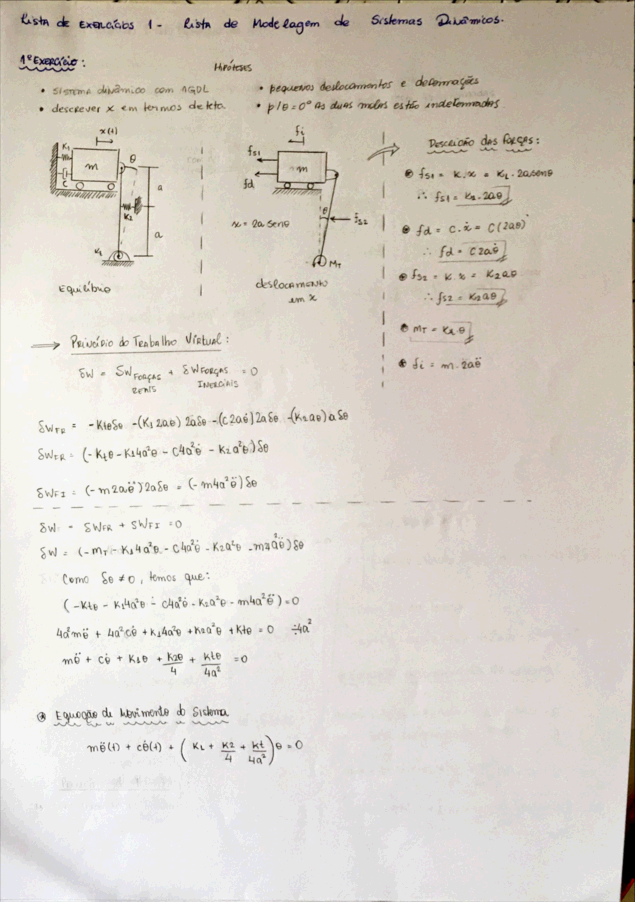 Lista de Exercícios 1 - Lista de Modelagem de Sistemas Dinâmicos.
1º Exercício:
Hipóteses
• Sistema dinâmico com 1GDL
• pequenos deslocamentos e deformações
• descrever x em termos de teta.
• p/θ = 0° as duas molas estão indeformadas
x(t)
K1
m
θ
C
a
K2
a
Kt
Equilíbrio
fi
fs1
m
fd
θ
fs2
x = 2a senθ
MT
deslocamento
em x
Descrição das forças:
fs1 = K.x = K1.2a senθ
∴ fs1 = K1.2aθ
fd = C.ẋ = C(2aθ)˙
∴ fd = C2aθ̇
fs2 = K.x = K2aθ
∴ fs2 = K2aθ
MT = Ktθ
fi = m.2aθ̈
→ Princípio do Trabalho Virtual:
δW = δW FORÇAS REAIS + δW FORÇAS INERCIAIS = 0
δWFR = -Ktθδθ -(K1 2aθ) 2aδθ -(C2aθ̇)2aδθ -(K2aθ)aδθ
δWFR = (-Ktθ - K14a²θ - C4a²θ̇ - K2a²θ)δθ
δWFI = (-m2aθ̈)2aδθ = (-m4a²θ̈)δθ
δW = δWFR + δWFI = 0
δW = (-MT - K14a²θ - C4a²θ̇ - K2a²θ - m4a²θ̈)δθ
Como δθ ≠ 0, temos que:
(-Ktθ - K14a²θ - C4a²θ̇ - K2a²θ - m4a²θ̈) = 0
4a²mθ̈ + 4a²cθ̇ + K14a²θ + K2a²θ + Ktθ = 0 ÷4a²
mθ̈ + cθ̇ + K1θ + K2θ/4 + Ktθ/4a² = 0
Equação de Movimento do Sistema
mθ̈(t) + cθ̇(t) + (K1 + K2/4 + Kt/4a²)θ = 0